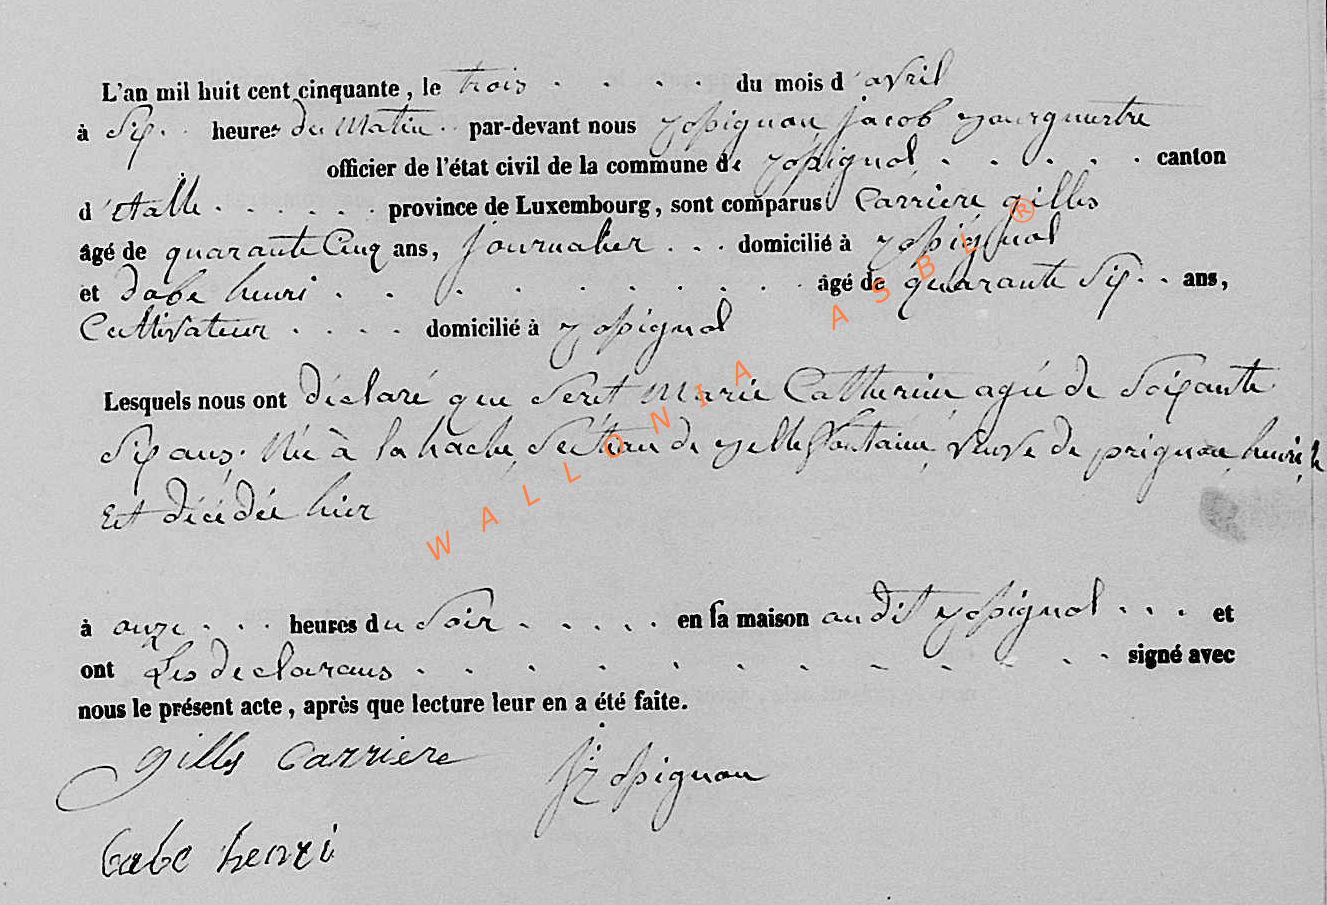 L'an mil huit cent cinquante, le trois . . . . du mois d'avril
à Six . . heures du Matin . . par-devant nous Rossignon jacob Bourgmestre
officier de l'état civil de la commune de Rossignol . . . . . canton
d'Etalle . . . . . . province de Luxembourg, sont comparus Carriere gilles
âgé de quarante Cinq ans, journalier . . . domicilié à Rossignol
et babe henri . . . . . . . . . . . âgé de quarante Six . . ans,
Cultivateur . . . . domicilié à Rossignol
Lesquels nous ont déclaré que Marie Catherine agée de Soixante
Six ans. Née à la hache Section de Mellefontaine, veuve de henri,
Est décédée hier
à onze . . . heures du Soir . . . . . en sa maison audit Rossignol . . . et
ont Les declarans . . . . . . . . . . . signé avec
nous le présent acte, après que lecture leur en a été faite.
gilles Carriere
J Rossignon
babe henri
WALLONIA ASBL ®